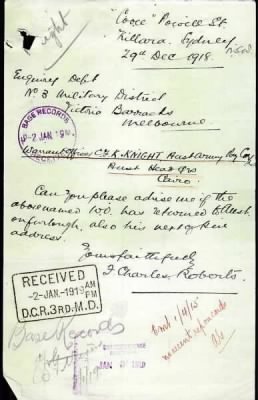 Knight
"Cocee" Powell St
Killara. Sydney
N.S.W
29th Dec 1918.
Enquiry Dept
No 3 Military District
Victoria Barracks
Melbourne
BASE RECORDS
2 JAN 19
Warrant Officer C. F. K. KNIGHT Aust Army Pay Corps
Aust Head Qrs
Cairo
Can you please advise me if the
abovenamed W.O. has returned to Aust.
on furlough, also his next of kin
address.
Yours faithfully
J Charles Roberts.
RECEIVED
-2-JAN-1919 AM
PM
D.C.R. 3RD. M.D.
Base Records